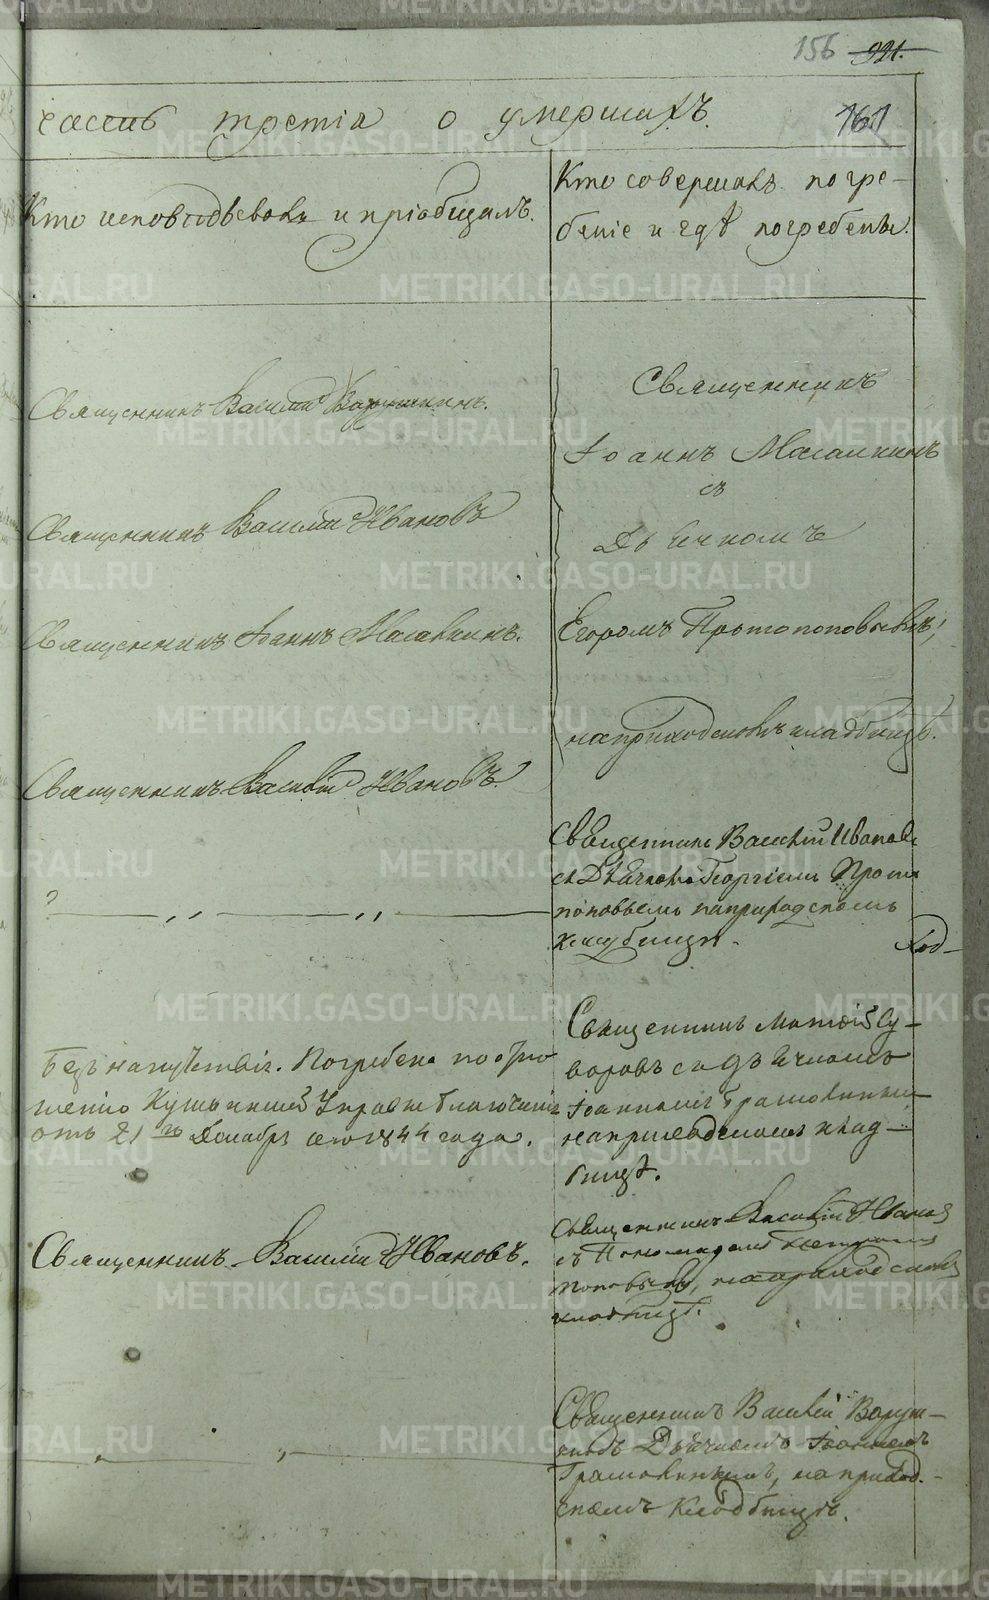 156 921.
часть третія о умершихъ. 161
Кто исповѣдывалъ и пріобщалъ.
Кто совершалъ погре-
беніе и гдѣ погребены.
Священникъ Василій
Священникъ Василій Ивановъ
Священникъ Іоаннъ
Священникъ Василій Ивановъ.
Священникъ
Іоаннъ
съ
Дьячкомъ
Егоромъ Протопоповымъ,
на приходскомъ кладбищѣ.
Священникъ Василій Ивановъ
съ Дьячкомъ Георгіемъ Прото
поповымъ на приходскомъ
кладбищѣ.
Ход-
Безъ напутствія. Погребена по отно
шенію Управы Благочинія
отъ 21го Декабря сего 1844 года.
Священникъ Матѳій Су-
воровъ съ дьячкомъ
Іоанномъ
на приходскомъ клад-
бищѣ.
Священникъ Василій Ивановъ.
Священникъ Василій Ивановъ
съ Пономаремъ
Поповымъ, на приходскомъ
кладбищѣ.
Священникъ Василій
Дьячкомъ Іоанномъ
на приход-
скомъ Кладбищѣ.
METRIKI.GASO-URAL.RU